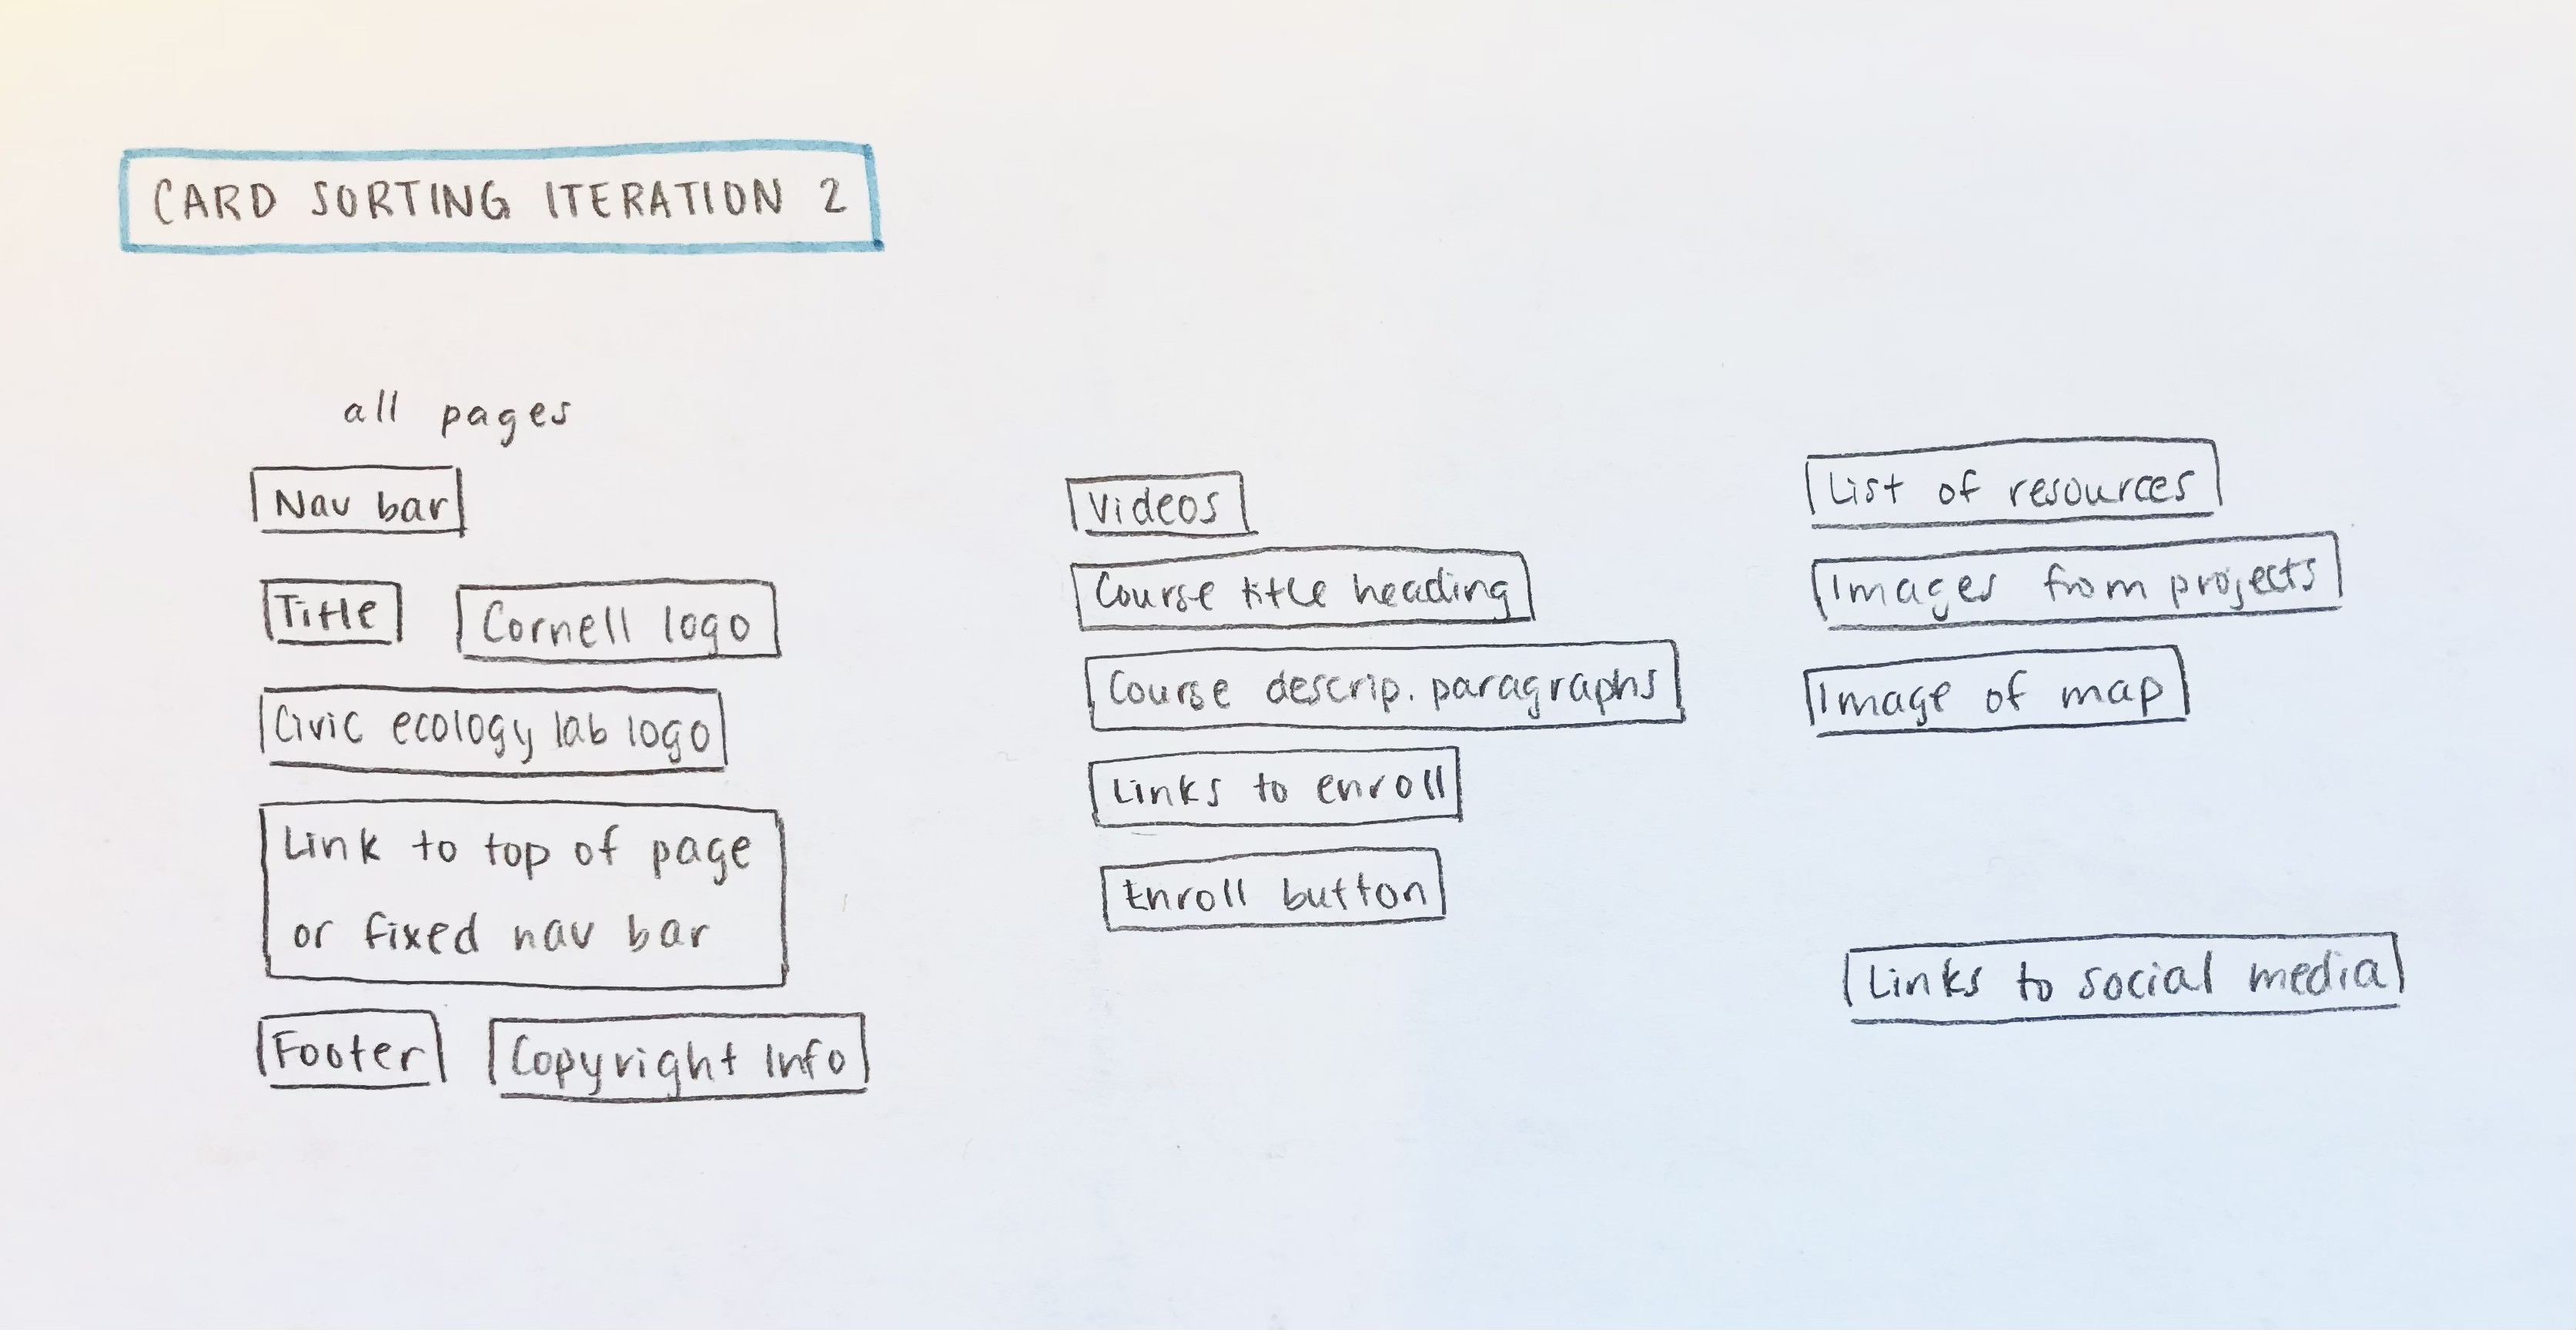 CARD SORTING ITERATION 2
all pages
Nav bar
Title
Cornell logo
Civic ecology lab logo
Link to top of page
or fixed nav bar
Footer
Copyright Info
Videos
Course title heading
Course descrip. paragraphs
Links to enroll
Enroll button
List of resources
Images from projects
Image of map
Links to social media